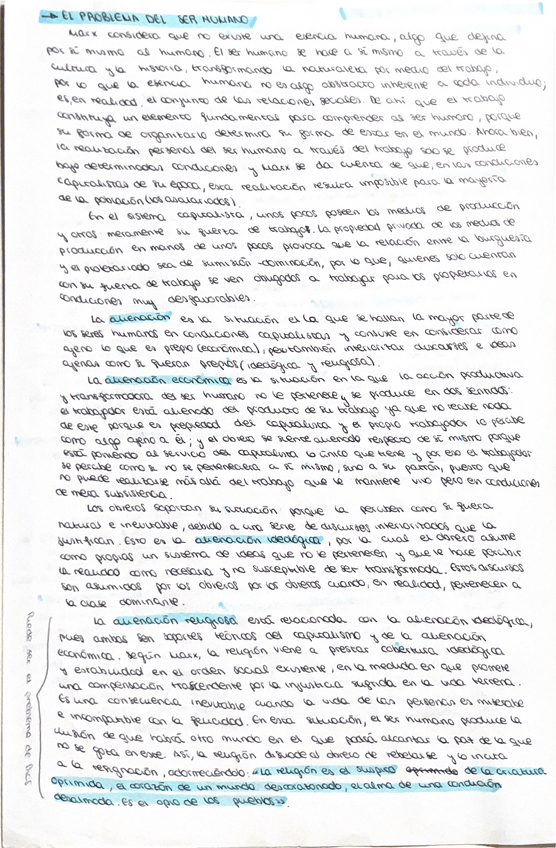 → EL PROBLEMA DEL SER HUMANO
Marx considera que no existe una esencia humana, algo que defina
por sí mismo al humano. El ser humano se hace a sí mismo a través de la
cultura y la historia, transformando la naturaleza por medio del trabajo,
por lo que la esencia humana no es algo abstracto inherente a cada individuo;
es, en realidad, el conjunto de las relaciones sociales. De ahí que el trabajo
constituya un elemento fundamental para comprender al ser humano, porque
su forma de organizarlo determina su forma de estar en el mundo. Ahora bien,
la realización personal del ser humano a través del trabajo solo se produce
bajo determinadas condiciones y Marx se da cuenta de que, en las condiciones
capitalistas de su época, esta realización resulta imposible para la mayoría
de la población (los asalariados).
En el sistema capitalista, unos pocos poseen los medios de producción
y otros meramente su fuerza de trabajo. La propiedad privada de los medios de
producción en manos de unos pocos provoca que la relación entre la burguesía
y el proletariado sea de sumisión-dominación, por lo que, quienes solo cuentan
con su fuerza de trabajo se ven obligados a trabajar para los propietarios en
condiciones muy desfavorables.
La alienación es la situación el la que se hallan la mayor parte de
los seres humanos en condiciones capitalistas y consiste en considerar como
ajeno lo que es propio (económica), pero también interiorizar discursos e ideas
ajenas como si fueran propios (ideológica y religiosa).
La alienación económica es la situación en la que la acción productiva
y transformadora del ser humano no le pertenece y se produce en dos sentidos:
el trabajador está alienado del producto de su trabajo ya que no recibe nada
de este porque es propiedad del capitalista y el propio trabajador lo percibe
como algo ajeno a él; y el obrero se siente alienado respecto de sí mismo porque
está poniendo al servicio del capitalista lo único que tiene y por eso el trabajador
se percibe como si no se perteneciera a sí mismo, sino a su patrón, puesto que
no puede realizarse más allá del trabajo que le mantiene vivo pero en condiciones
de mera subsistencia.
Los obreros soportan su situación porque la perciben como si fuera
natural e inevitable, debido a una serie de discursos interiorizados que la
justifican. Esto es la alienación ideológica, por la cual el obrero asume
como propias un sistema de ideas que no le pertenecen y que le hace percibir
la realidad como necesaria y no susceptible de ser transformada. Estos discursos
son asumidos por los obreros por los obreros cuando, en realidad, pertenecen a
la clase dominante.
La alienación religiosa está relacionada con la alienación ideológica,
pues ambas son soportes teóricos del capitalismo y de la alienación
económica. Según Marx, la religión viene a prestar cobertura ideológica
y estabilidad en el orden social existente, en la medida en que promete
una compensación trascendente por la injusticia sufrida en la vida terrena.
Es una consecuencia inevitable cuando la vida de las personas es miserable
e incompatible con la felicidad. En esta situación, el ser humano produce la
ilusión de que habrá otro mundo en el que podrá alcanzar la paz de la que
no se goza en este. Así, la religión disuade al obrero de rebelarse y lo incita
a la resignación, adormeciéndolo: «La religión es el suspiro de la criatura
oprimida, el corazón de un mundo descorazonado, el alma de una condición
desalmada. Es el opio de los pueblos».
Puede ser el problema de Dios